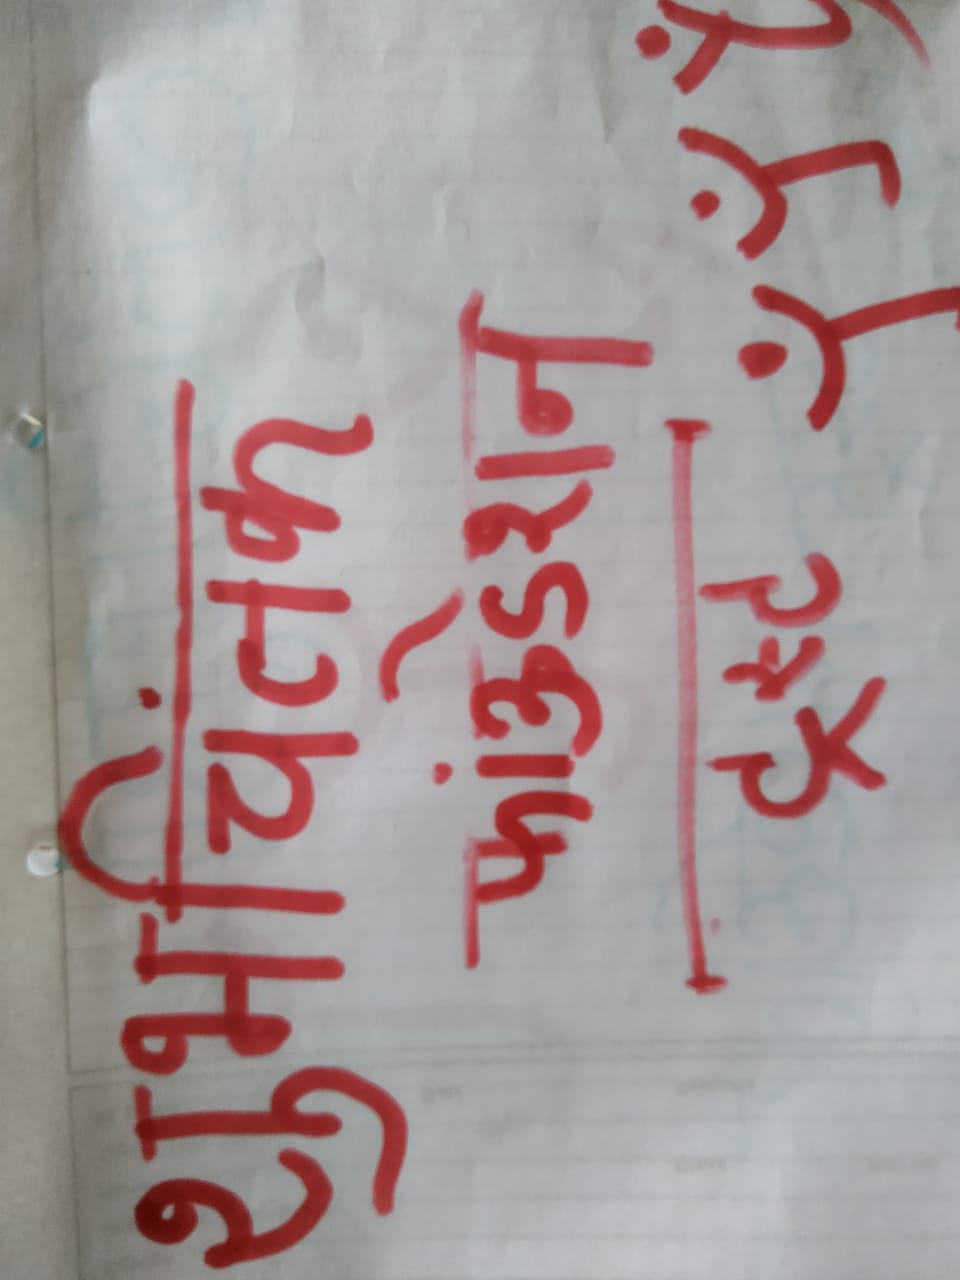 शुभचिंतक
फांउडेशन
ट्रस्ट